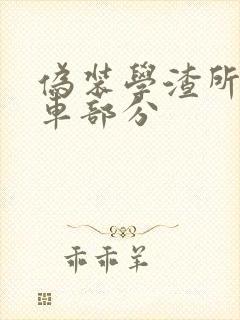 偽裝學渣所
車部分
乖乖羊